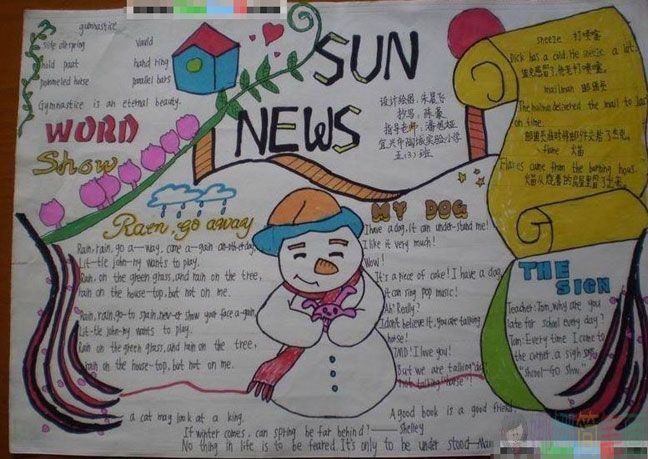 gymnastics
side offspring
vauld
hold part
hand ring
pommeled horse
parallel bars
Gymnastice is an eternal beauty.
WORD
Show
SUN
NEWS
设计绘图:朱晨飞
抄写:陈
指导老师:潘
宜兴市陶城实验小学
五(3)班
sneeze 打喷嚏
Dick has a cold. He sneeze a lot.
迪克感冒了,他老打喷嚏。
mailman 邮递员
The mailman delivered the mail to
on time.
邮递员准时将邮件交给了杰克。
flame 火焰
Flares came from the burning house.
火焰从燃着的房屋里冒了出来。
Rain, go away
Rain, rain, go a—way, come a—gain an-oth-er day,
Lit—tle john-ny wants to play.
Rain, on the green glass, and rain on the tree,
rain on the house-top, but not on me.
Rain, rain, go-to spain, nev-er show your face a-gain,
Lit-tle john-ny wants to play.
Rain on the green glass, and rain on the tree,
rain on the house-top, but not on me.
MY DOG
I have a dog, it can under-stand me!
I like it very much!
Wow!
It's a piece of cake! I have a dog,
it can sing pop music!
Ah! Really?
I don't believe it, you are talking
horse!
I love you!
But we are talking "dog"
not talking "horse"!
THE
SIGN
Teacher: Tom, why are you
late for school every day?
Tom: Every time I come to
the corner, a sign says,
"school—GO Slow."
a cat may look at a king,
A good book is a good friend.
If winter comes, can spring be far behind?——Shelley
No thing in life is to be feared. It's only to be under stood—